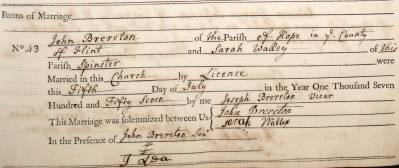 Banns of Marriage
No. 43 John Brereton of the Parish of Hope in ye. County
of Flint and Sarah Walley of this
Parish Spinster were
Married in this Church by Licence
this Fifth Day of July in the Year One Thousand Seven
Hundred and Fifty Seven by me Joseph Brereton Vicar
This Marriage was solemnized between Us John Brereton
Sarah
In the Presence of John Brereton Senr